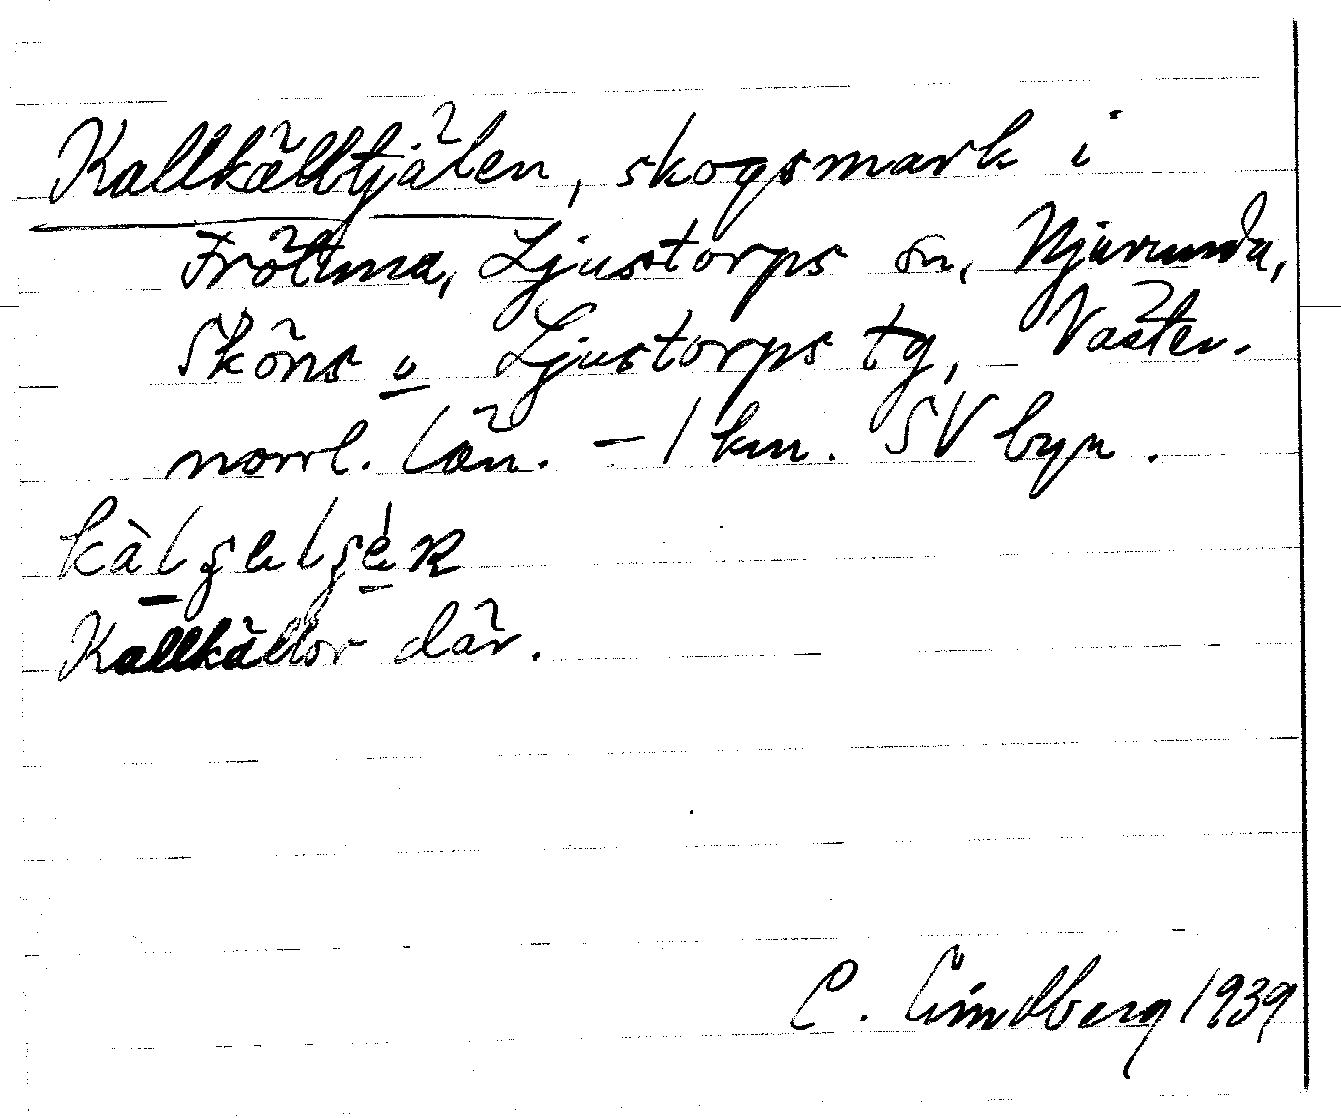 Kallkälltjälen, skogsmark i
Frötuna, Ljustorps sn, Njurunda,
Sköns o Ljustorps tg, Väster-
norrl. län. – 1 km. SV byn.
Kallkällor där.
C. Lindberg 1939